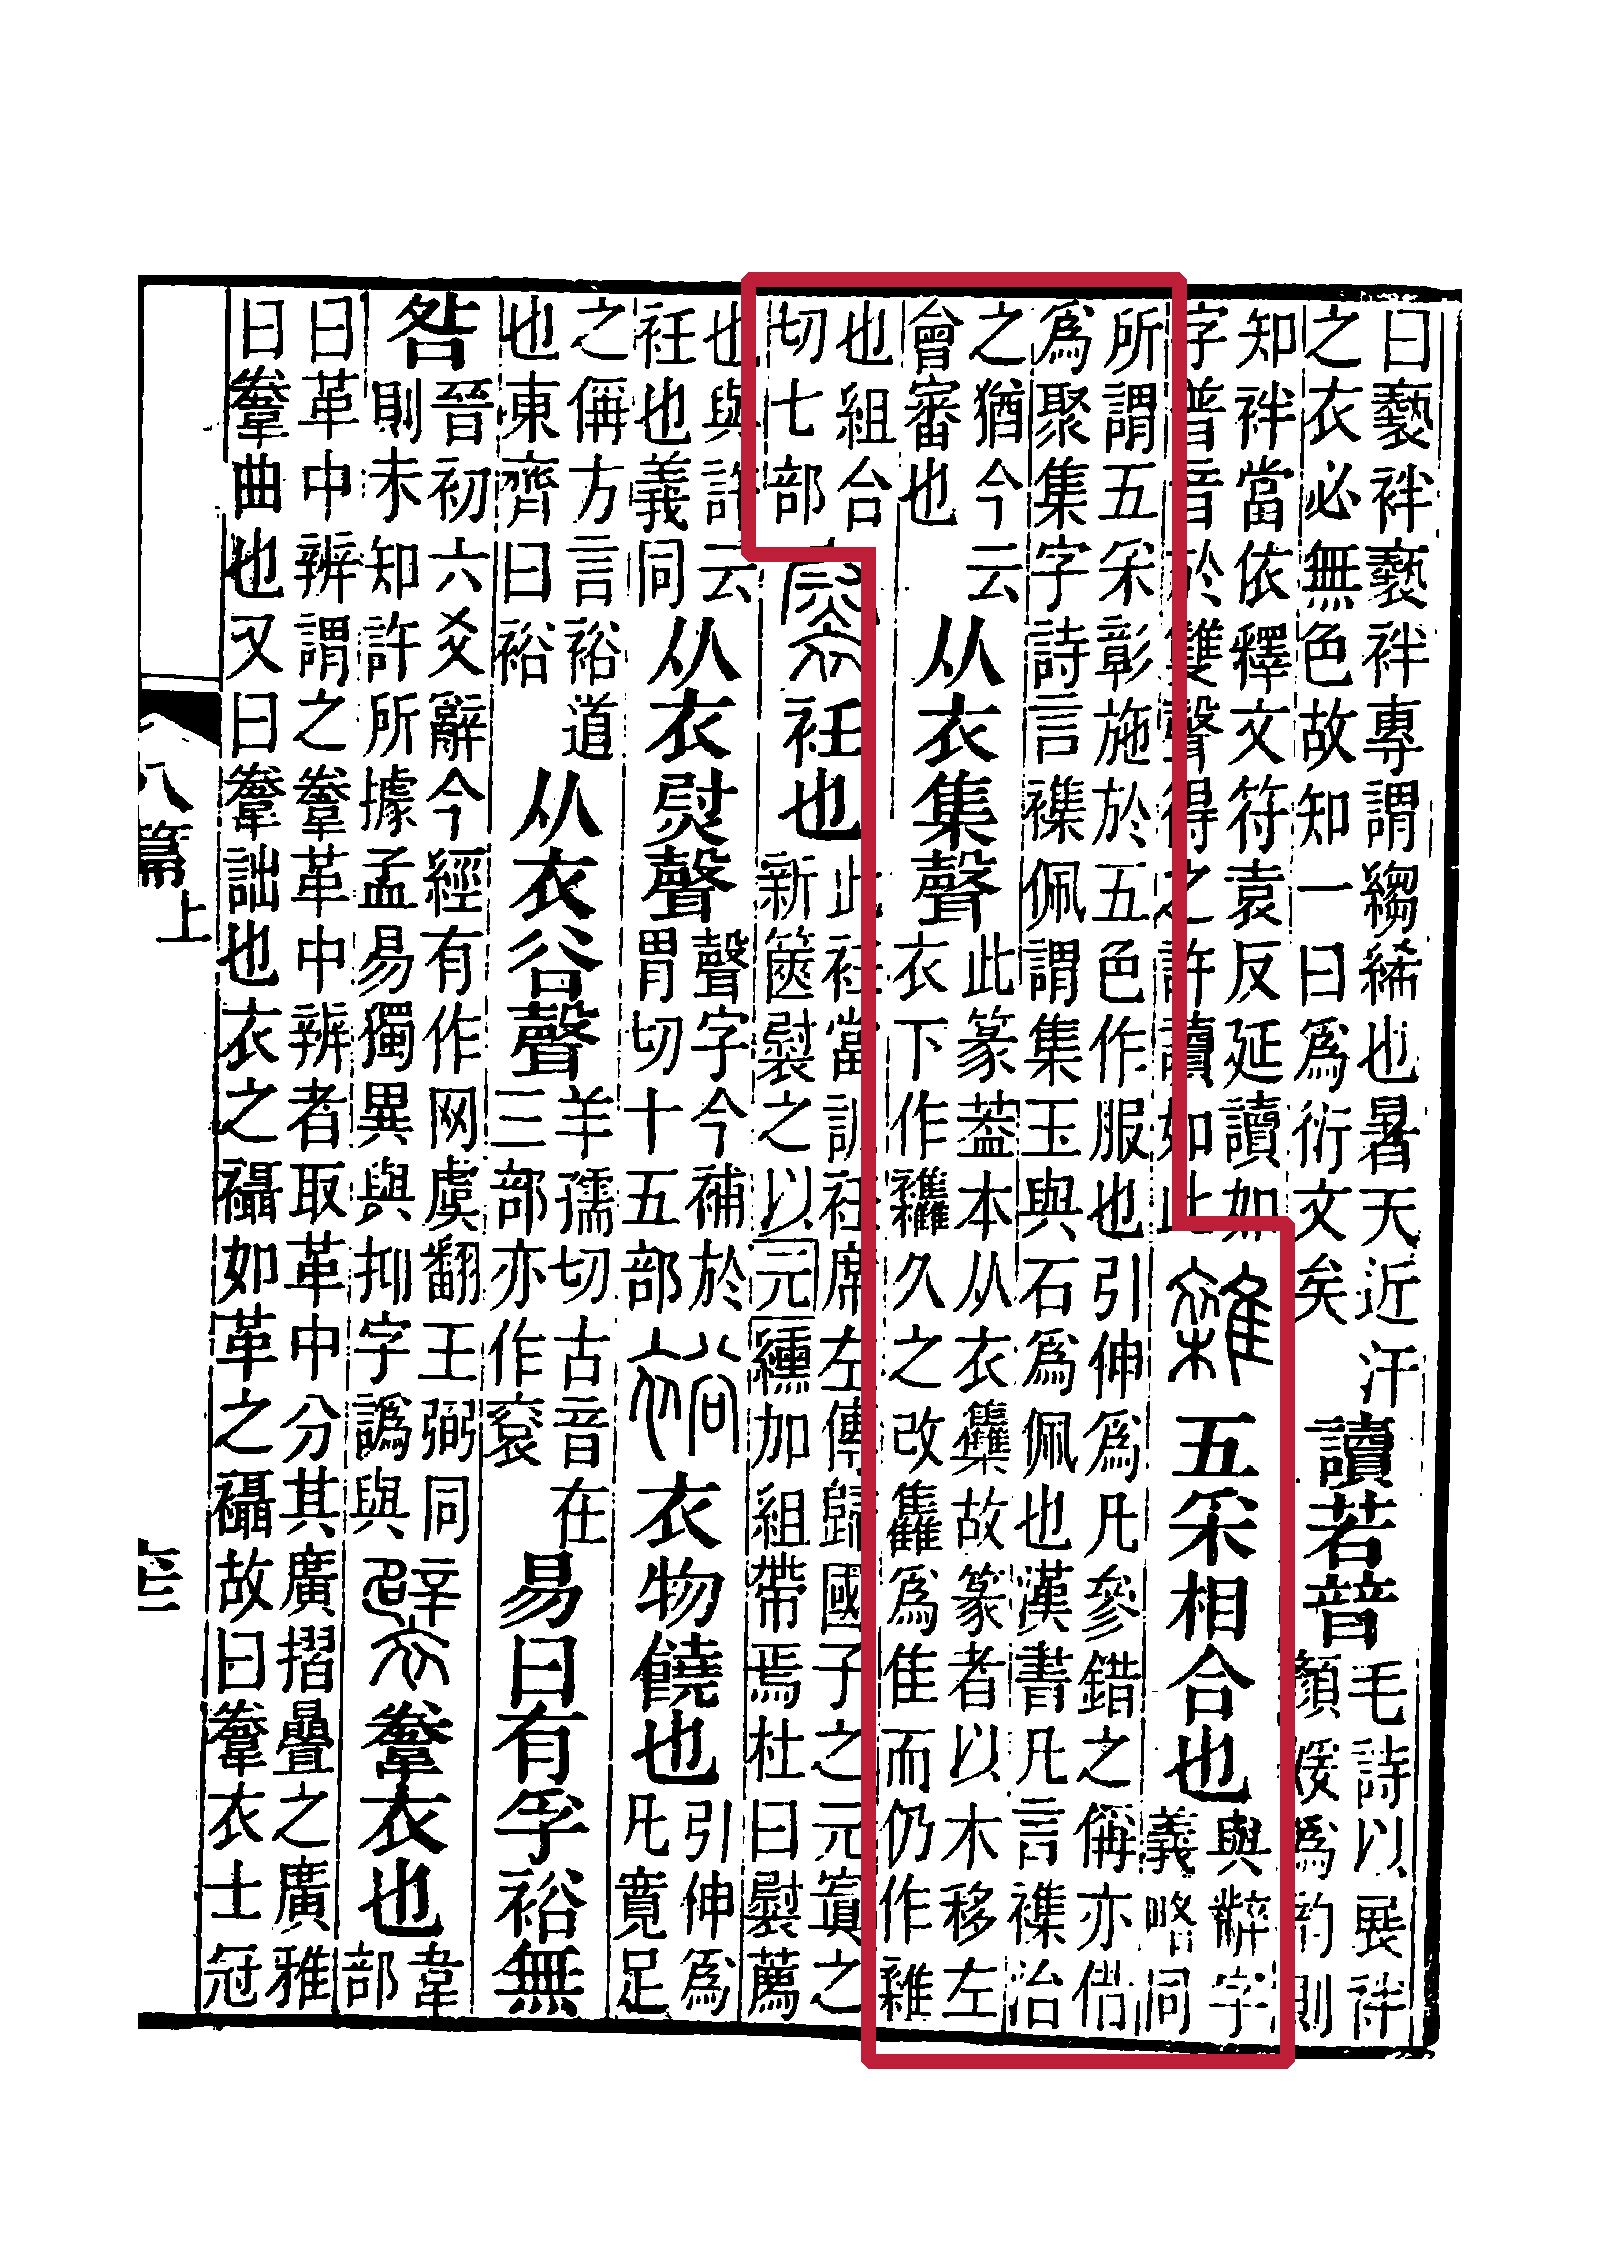 曰褻袢褻袢專謂縐絺也暑天近汗
之衣必無色故知一曰爲衍文矣
讀若普
毛詩以展袢
顏媛爲韵則
知袢當依釋文符袁反延讀如
字普音於雙聲得之許讀如此
雜
五采相合也
與字
義略同
所謂五采彰施於五色作服也引伸爲凡參錯之偁亦借
爲聚集字詩言襍佩謂集玉與石爲佩也漢書凡言襍治
之猶今云
會審也
从衣集聲
此篆葢本从衣雧故篆者以木移左
衣下作久之改雥爲隹而仍作雜
也組合
切七部
褽
衽也
此衽當訓衽席左傳歸國子之元寘之
新篋褽之以元纁加組帶焉杜曰褽薦
也與許云
衽也義同
从衣尉聲
聲字今補於
胃切十五部
裕
衣物饒也
引伸爲
凡寬足
之偁方言裕道
也東齊曰裕
从衣谷聲
羊孺切古音在
三部亦作
易曰有孚裕無
咎
晉初六爻辭今經有作网虞翻王弼同
則未知許所據孟易獨異與抑字譌與
襞
韏衣也
韋
部
曰革中辨謂之韏革中辨者取革中分其廣摺疊之廣雅
曰韏曲也又曰韏詘也衣之襵如革之襵故曰韏衣士冠
八篇上